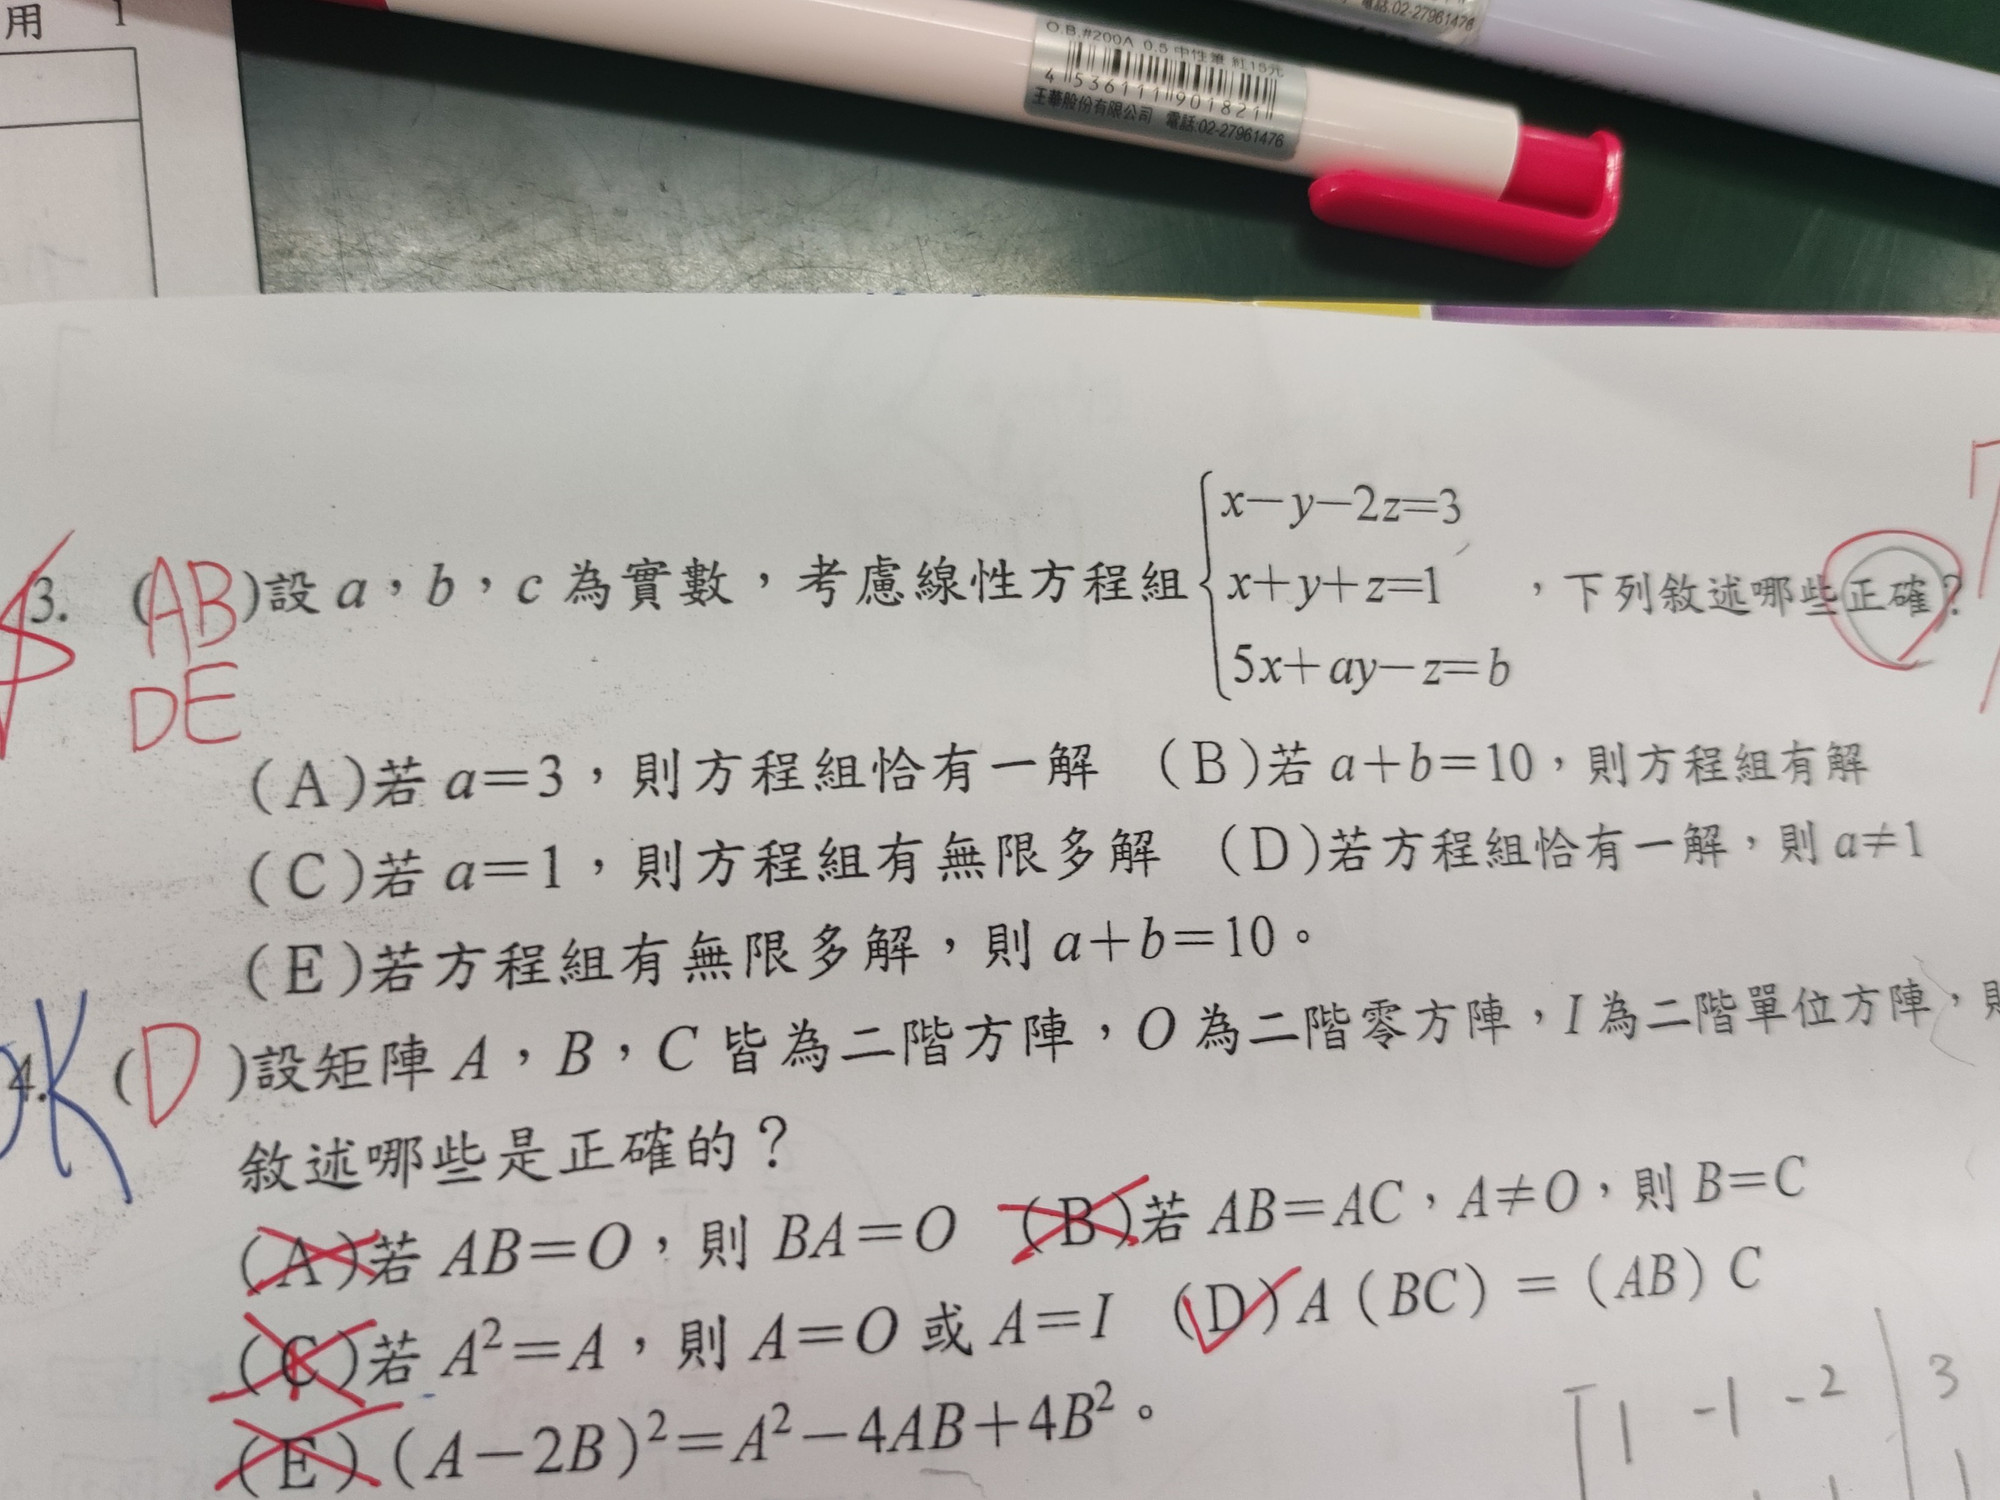 用 1
電話:02-27961476
O.B.#200A 0.5 中性筆 紅15元
4 536111 901821
王華股份有限公司 電話:02-27961476
x−y−2z=3
3. (AB)設 a，b，c 為實數，考慮線性方程組 x+y+z=1 ，下列敘述哪些正確？
DE 5x+ay−z=b
(A)若 a=3，則方程組恰有一解 (B)若 a+b=10，則方程組有解
(C)若 a=1，則方程組有無限多解 (D)若方程組恰有一解，則 a≠1
(E)若方程組有無限多解，則 a+b=10。
OK 4. (D)設矩陣 A，B，C 皆為二階方陣，O 為二階零方陣，I 為二階單位方陣，則
敘述哪些是正確的？
(A)若 AB=O，則 BA=O (B)若 AB=AC，A≠O，則 B=C
(C)若 A²=A，則 A=O 或 A=I (D) A (BC) = (AB) C
(E) (A−2B)²=A²−4AB+4B²。
1 -1 -2 3